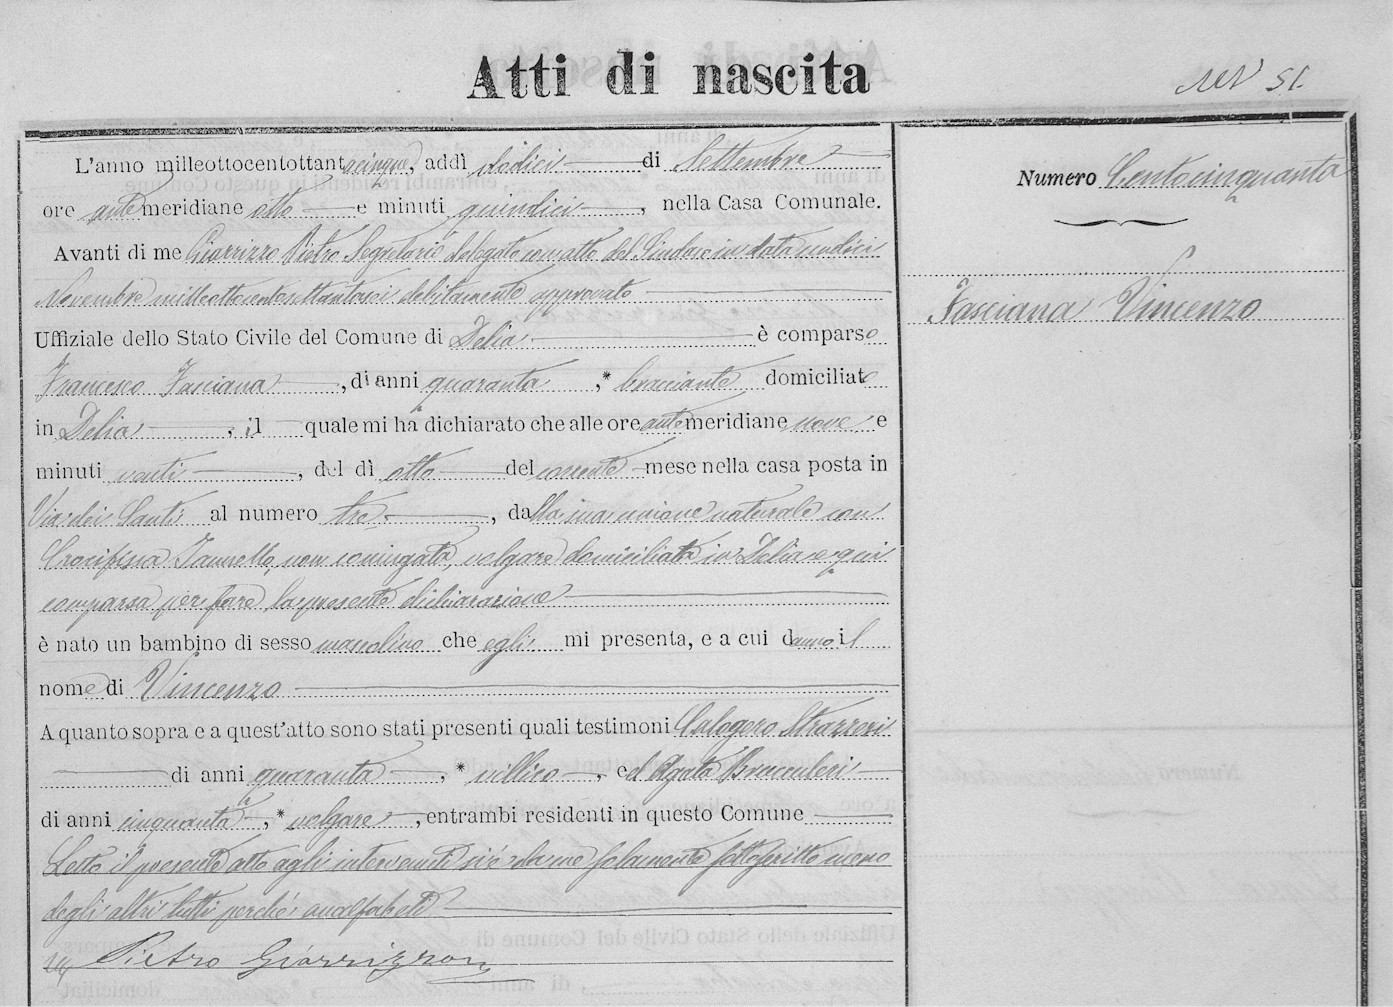 Atti di nascita
51.
L'anno milleottocentottantacinque, addì dodici di Settembre
ore antemeridiane otto e minuti quindici, nella Casa Comunale.
Avanti di me Giarrizzo Pietro Segretario delegato con atto del Sindaco in data undici
Novembre milleottocentosettantasei debitamente approvato
Uffiziale dello Stato Civile del Comune di Delia è comparso
Francesco Fasciana, di anni quaranta, * bracciante domiciliato
in Delia, il quale mi ha dichiarato che alle ore antemeridiane nove e
minuti venti, del dì otto del corrente mese nella casa posta in
Via dei Santi al numero tre, dalla sua unione naturale con
Crocifissa Iannello, non coniugata, volgare domiciliata in Delia e qui
comparsa per fare la presente dichiarazione
è nato un bambino di sesso mascolino che egli mi presenta, e a cui danno il
nome di Vincenzo
A quanto sopra e a quest'atto sono stati presenti quali testimoni Calogero Strazzeri
di anni quaranta, * villico, ed Agata Bracculeri
di anni cinquanta, * volgare, entrambi residenti in questo Comune
Letto il presente atto agli intervenuti si è da me solamente sottoscritto meno
degli altri tutti perché analfabeti
Pietro Giarrizzo
Numero Centocinquanta
Fasciana Vincenzo